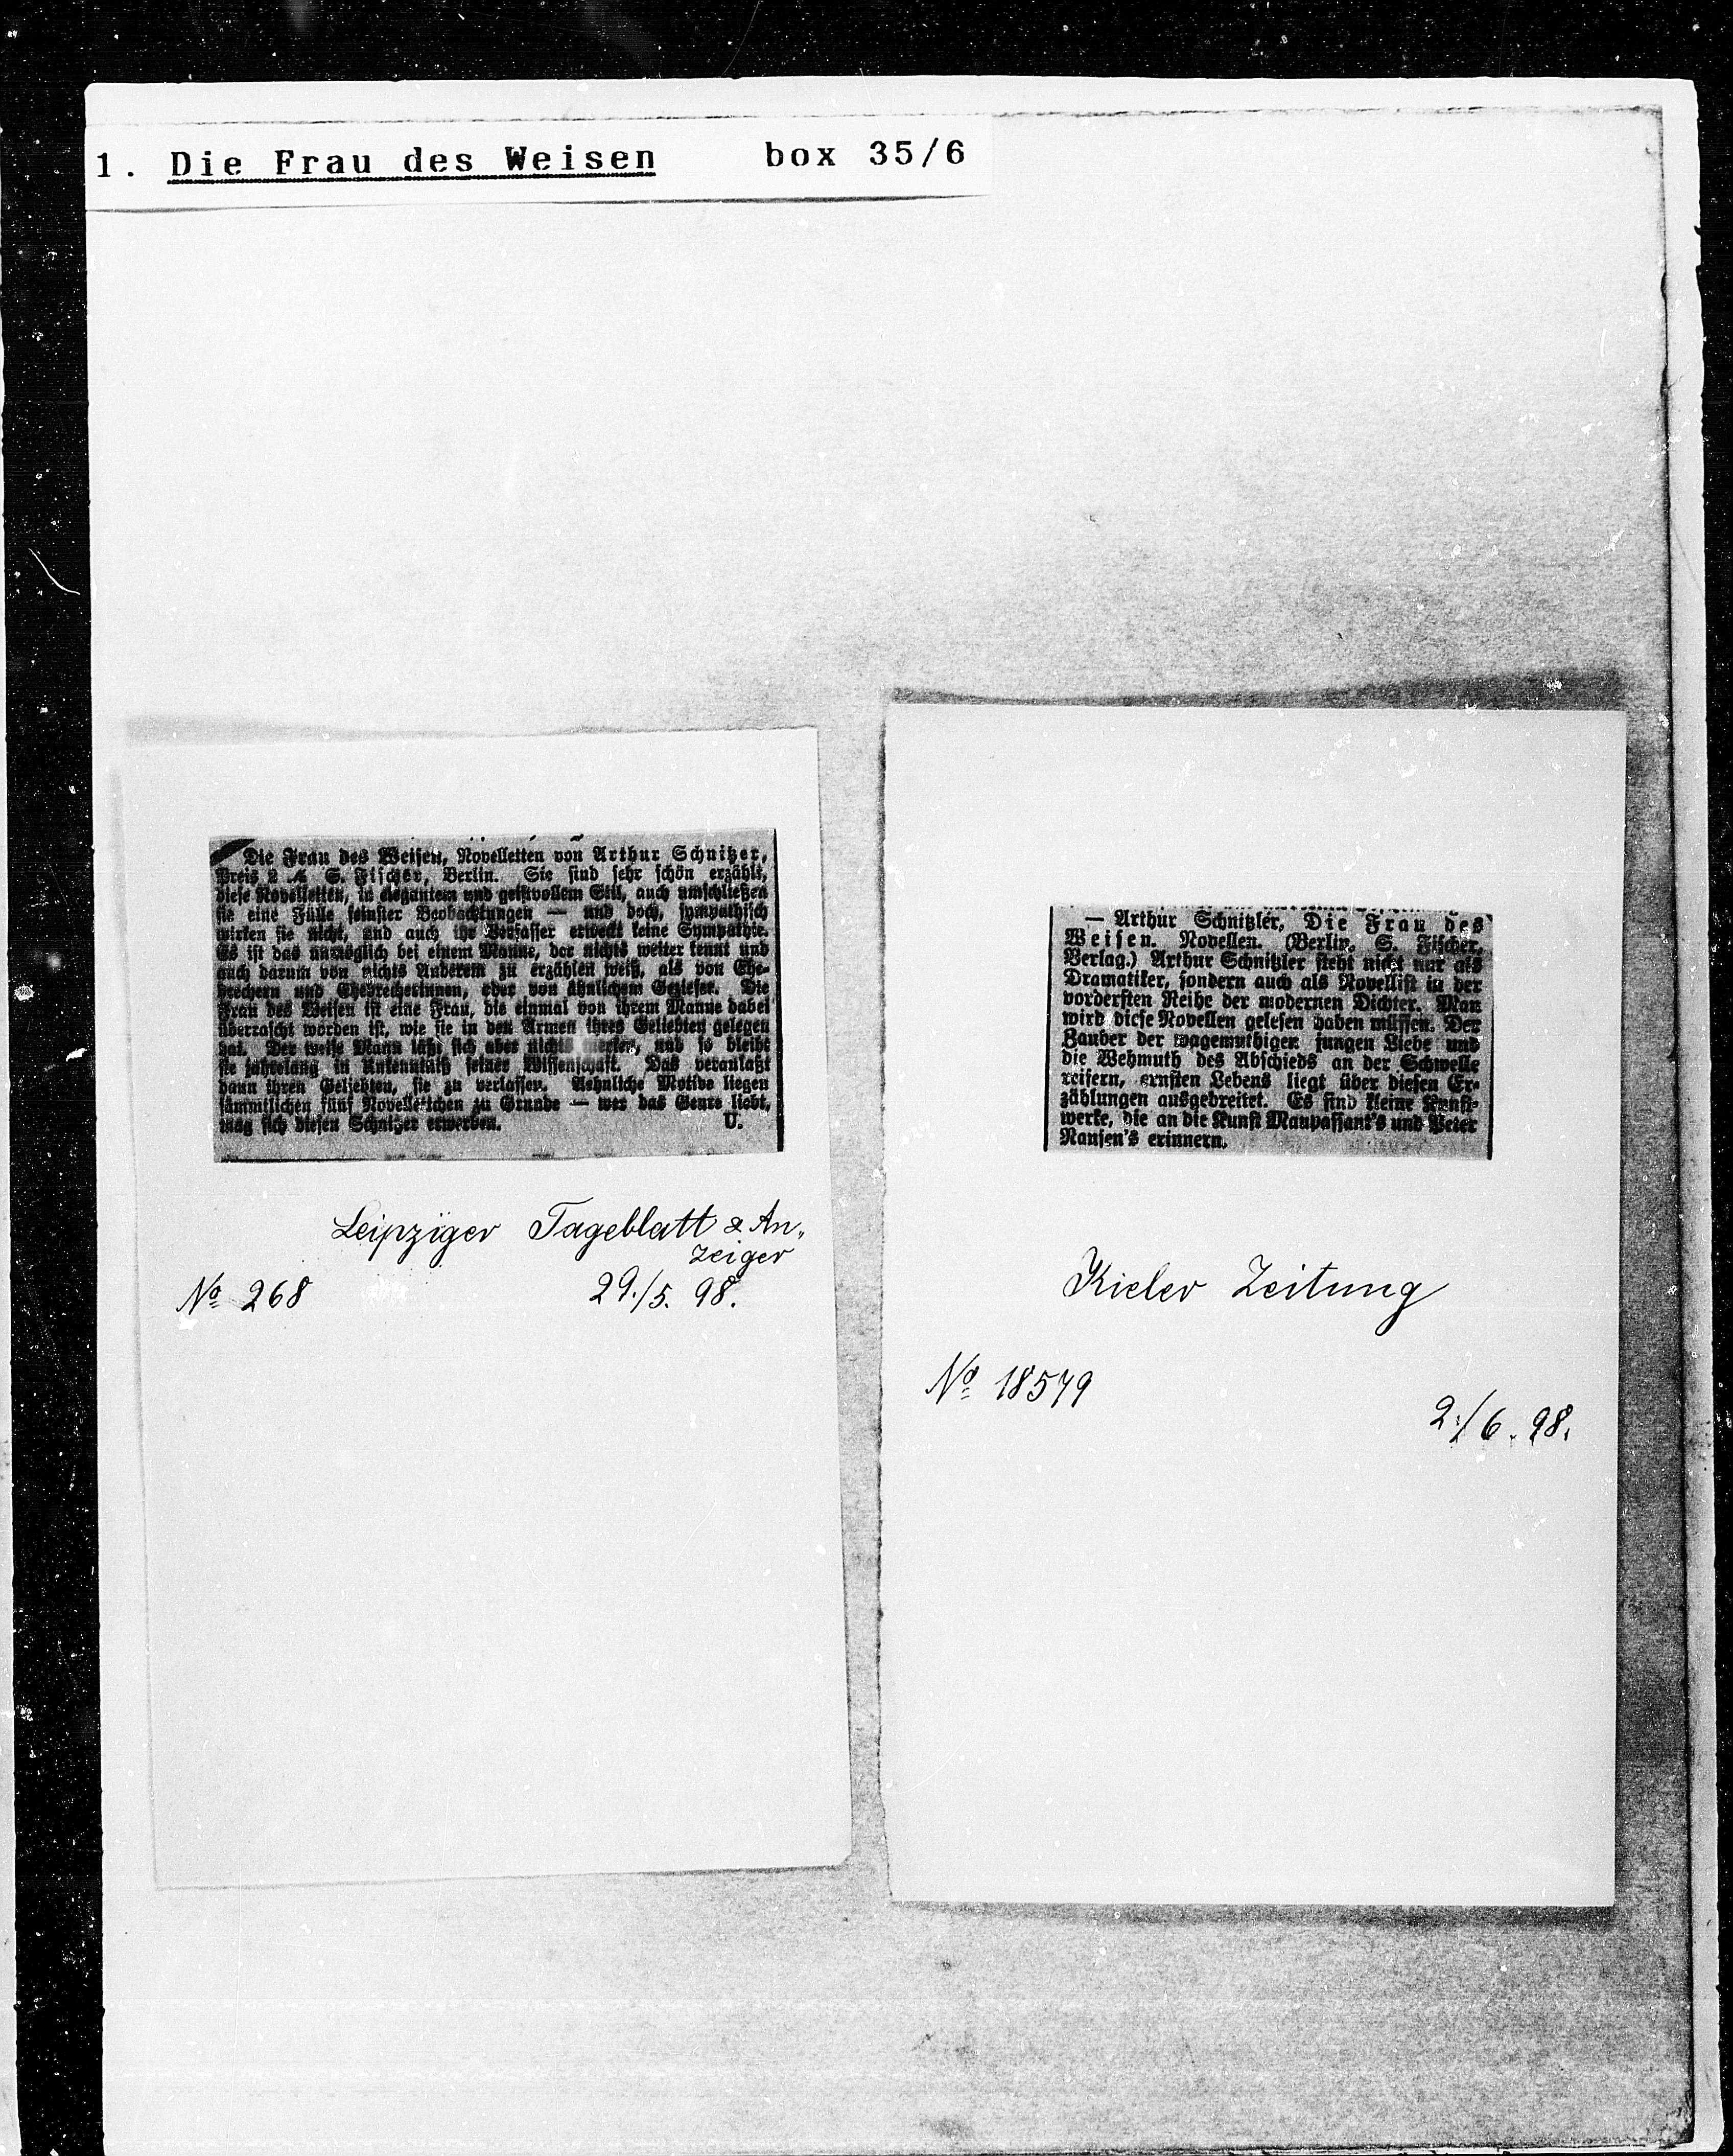 1. Die Frau des Weisen box 35/6
Die Frau des Weisen, Novelletten von Arthur Schnitzer,
Preis 2 ℳ S. Fischer, Berlin. Sie sind sehr schön erzählt,
diese Novelletten, in elegantem und geistvollem Stil, auch umschließen
sie eine Fülle feinster Beobachtungen — und doch, sympathisch
wirken sie nicht, und auch ihr Verfasser erweckt keine Sympathie.
Es ist das unmöglich bei einem Manne, der nichts weiter kennt und
auch darum von nichts Anderem zu erzählen weiß, als von Ehe-
brechern und Ehebrecherinnen, oder von ähnlichem Gezieser. Die
Frau des Weisen ist eine Frau, die einmal von ihrem Manne dabei
überrascht worden ist, wie sie in den Armen ihres Geliebten gelegen
hat. Der weise Mann läßt sich aber nichts merken, und so bleibt
sie jahrelang in Unkenntniß seiner Wissenschaft. Das veranlaßt
dann ihren Geliebten, sie zu verlassen. Aehnliche Motive liegen
sämmtlichen fünf Novellettchen zu Grunde — wer das Genre liebt,
mag sich diesen Schnitzer erwerben. U.
Leipziger Tageblatt & An-
zeiger
No 268 29./5. 98.
— Arthur Schnitzler, Die Frau des
Weisen. Novellen. (Berlin, S. Fischer,
Verlag.) Arthur Schnitzler steht nicht nur als
Dramatiker, sondern auch als Novellist in der
vordersten Reihe der modernen Dichter. Man
wird diese Novellen gelesen haben müssen. Der
Zauber der wagemuthigen jungen Liebe und
die Wehmuth des Abschieds an der Schwelle
reifern, ernsten Lebens liegt über diesen Er-
zählungen ausgebreitet. Es sind kleine Kunst-
werke, die an die Kunst Maupassant's und Peter
Nansen's erinnern.
Kieler Zeitung
No 18579
2./6. 98.